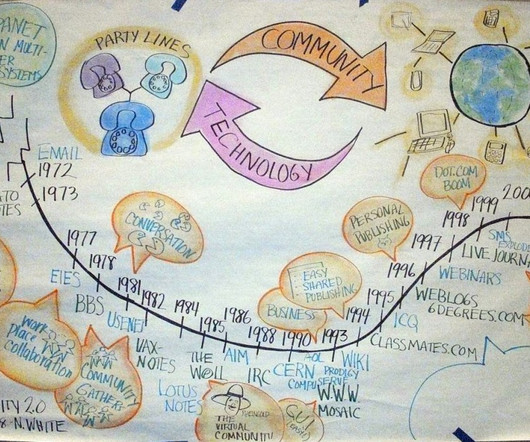 PANET
N MULTI-
ER
SYSTEMS
PARTY LINES
COMMUNITY
TECHNOLOGY
EMAIL
1972
1973
TES
1977
1978
1981
1982
1984
1985
1986
1988
1990
1993
1994
1995
1996
1997
1998
1999
200
CONVERSATION
EASY
SHARED
PUBLISHING
BUSINESS
PERSONAL
PUBLISHING
DOT.COM
BOOM
EIES
BBS
USENET
VAX-
NOTES
LOTUS
NOTES
THE
WELL
AIM
IRC
CERN
AOL
COMPUSERVE
PRODIGY
W.W.W.
MOSAIC
WIKI
CLASSMATES.COM
ICQ
6DEGREES.COM
WEBLOGS
WEBINARS
LIVE JOURNA
SMS
EXPLODE
WORK
PLACE
COLLABORATION
COMMUNITY
GATHERS
THE
VIRTUAL
COMMUNITY
GUI
ITY 2.0
8-N.WHITE